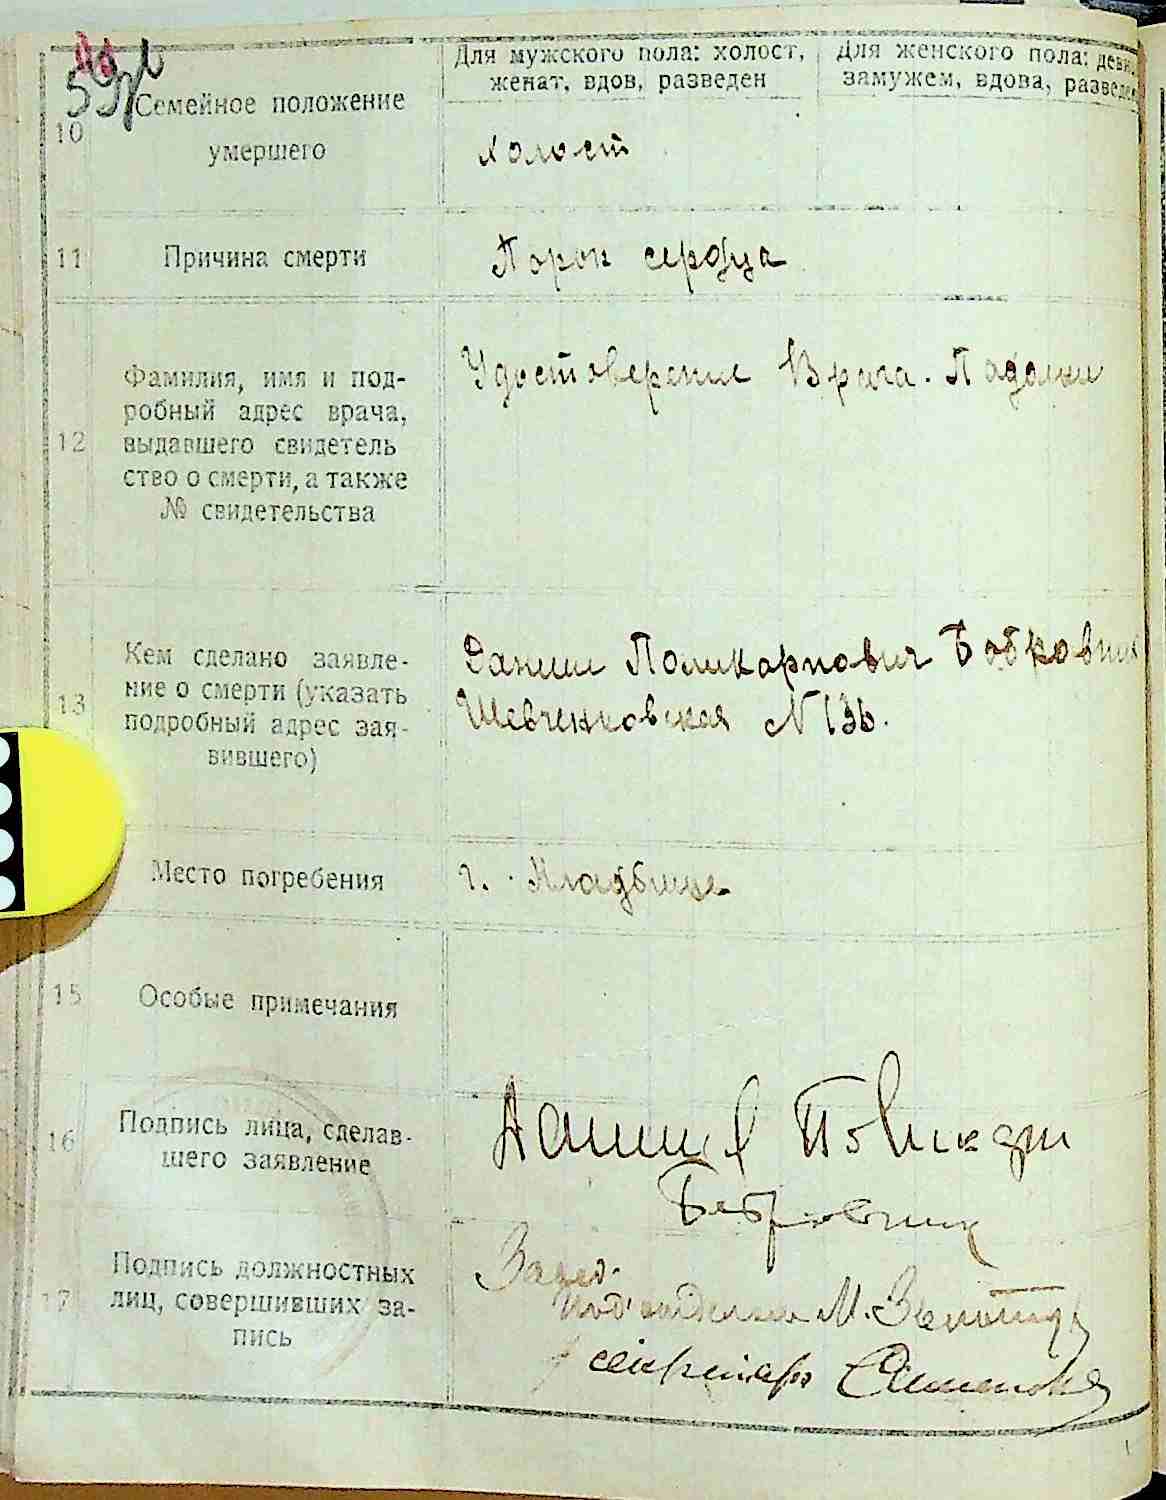 Для мужского пола: холост,
женат, вдов, разведен
Для женского пола: деви
замужем, вдова, разведен
10
Семейное положение
умершего
холост
11
Причина смерти
Порок сердца
12
Фамилия, имя и под-
робный адрес врача,
выдавшего свидетель
ство о смерти, а также
№ свидетельства
Удостоверение Врача.
13
Кем сделано заявле-
ние о смерти (указать
подробный адрес зая-
вившего)
Даниил Поликарпович Бобровник
Шевченковская N 136.
Место погребения
г. Кладбище
15
Особые примечания
16
Подпись лица, сделав-
шего заявление
Даниил
Бобровник
17
Подпись должностных
лиц, совершивших за-
пись
Завед.
под'отделом М.
секретарь